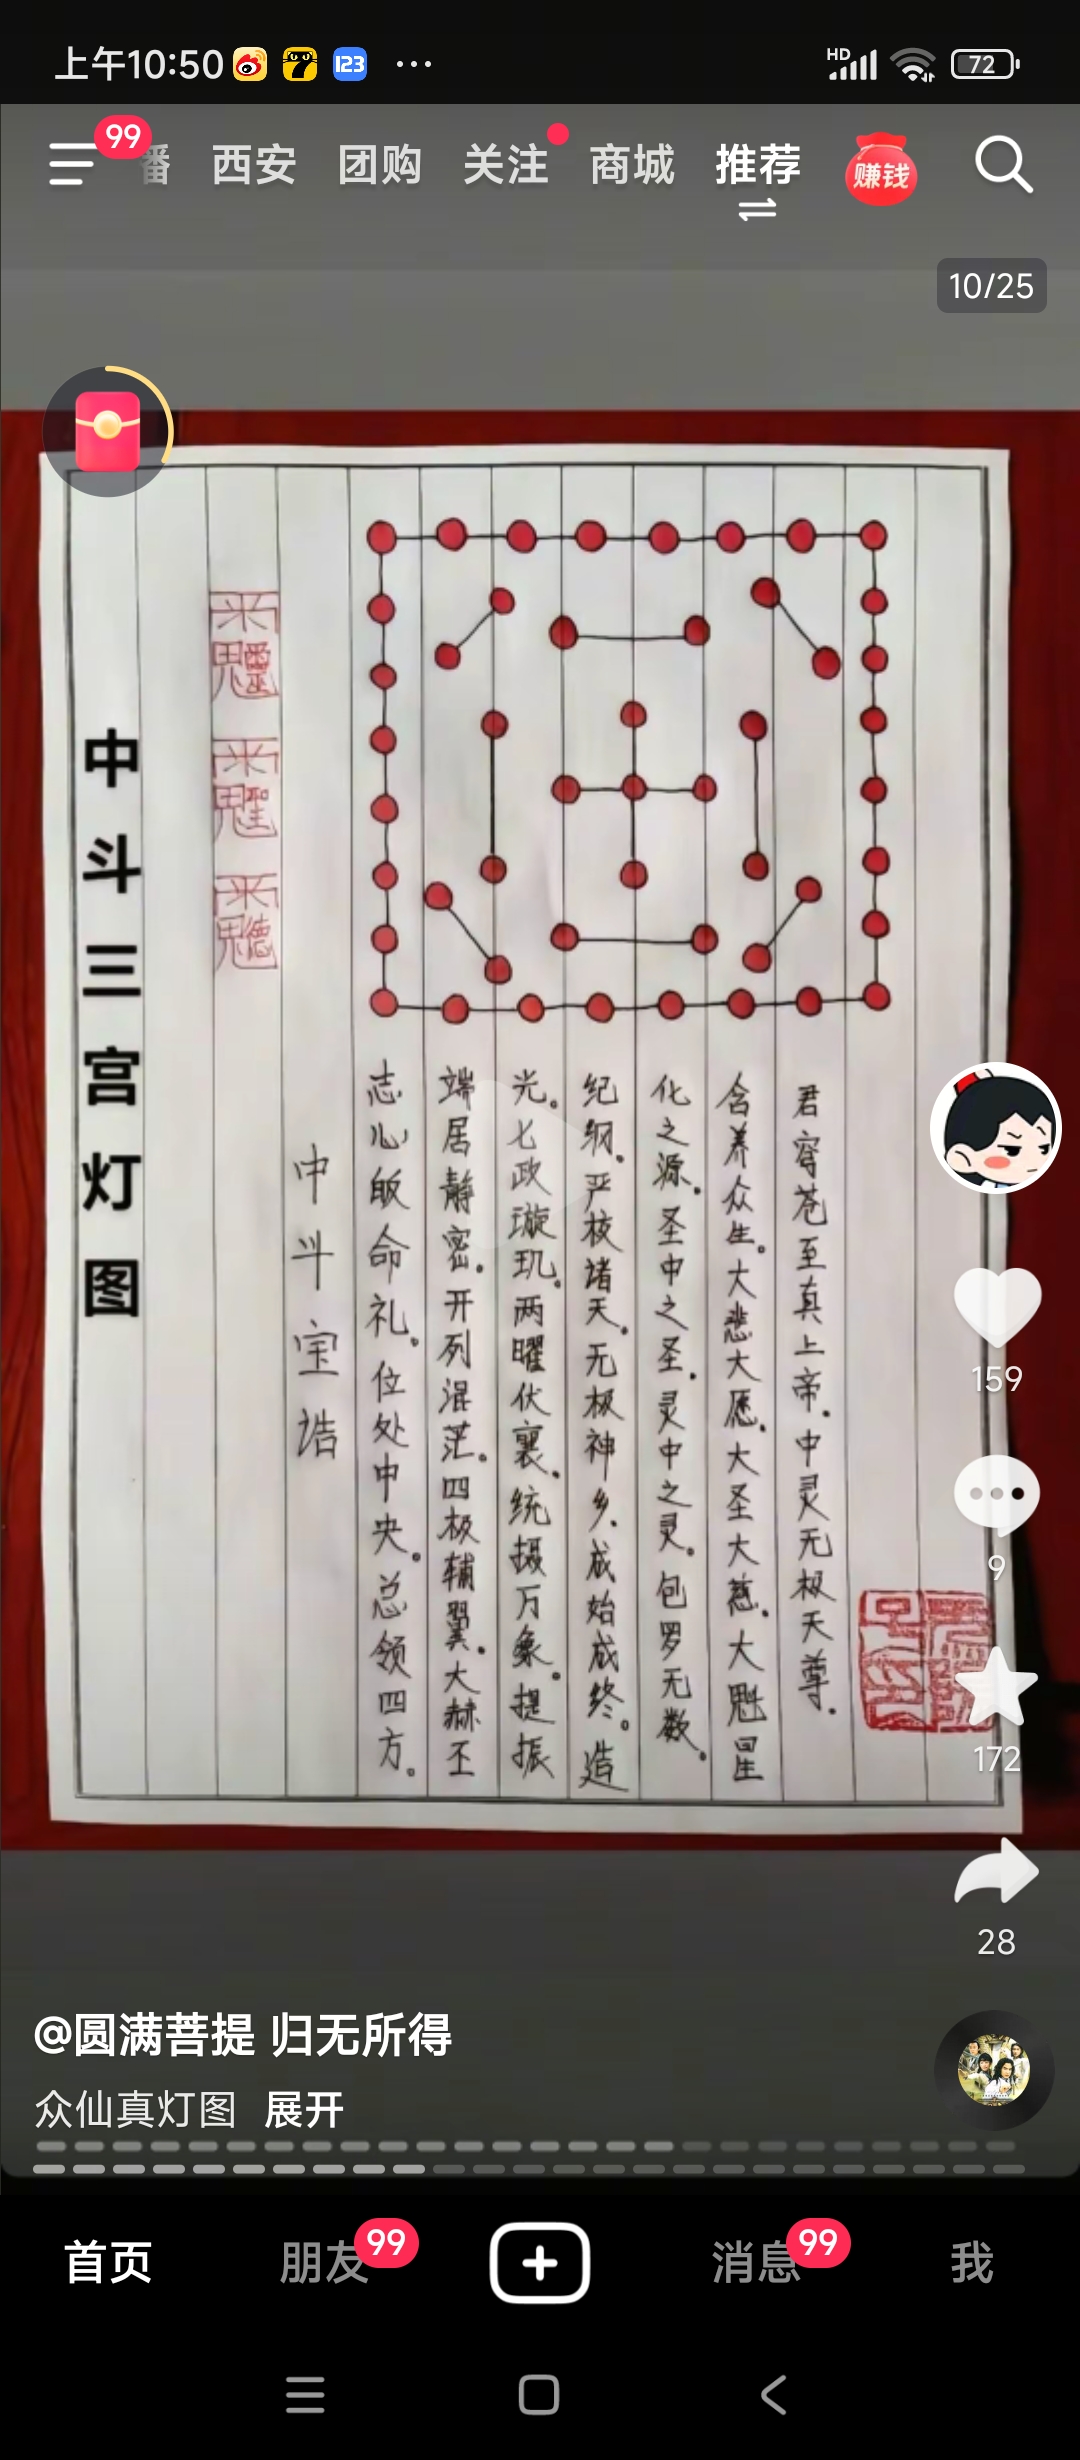 上午10:50
123
HD
72
99
播 西安 团购 关注 商城 推荐 赚钱
10/25
中斗三宫灯图
中斗宝诰
志心皈命礼。位处中央。总领四方。
端居静密。开列混茫。四极辅翼。大赫丕
光。七政璇玑。两曜伏襄。统摄万象。提振
纪纲。严核诸天。无极神乡。成始成终。造
化之源。圣中之圣。灵中之灵。包罗无数。
含养众生。大悲大愿。大圣大慈。大魁星
君穹苍至真上帝。中灵无极天尊。
159
9
172
28
@圆满菩提 归无所得
众仙真灯图 展开
首页 朋友 99 消息 99 我